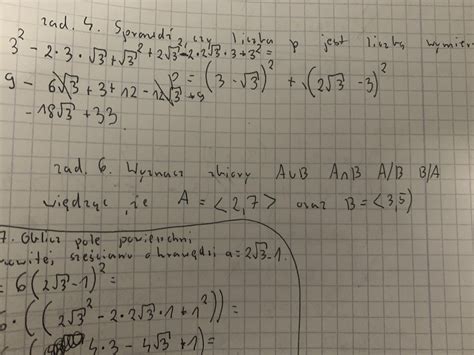 zad. 4. Sprawdź, czy liczba p jest liczbą wymier
p = (3 - √3)² + (2√3 - 3)²
3² - 2·3·√3 + √3² + 2√3² - 2·2√3·3 + 3² =
9 - 6√3 + 3 + 12 - 12√3 + 9
- 18√3 + 33
zad. 6. Wyznacz zbiory A∪B A∩B A/B B/A
wiedząc, że A = <2,7> oraz B = <3,5)
7. Oblicz pole powierzchni
kowitej sześcianu o krawędzi a = 2√3 - 1.
= 6(2√3 - 1)² =
6·((2√3² - 2·2√3·1 + 1²)) =
4·3 - 4√3 + 1) =